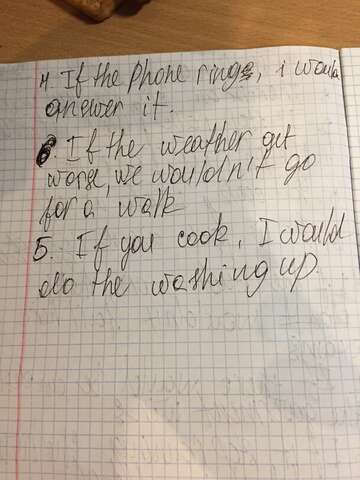 4. If the phone rings, i would
answer it.
6. If the weather get
worse, we wouldn't go
for a walk
5. If you cook, I would
do the washing up.